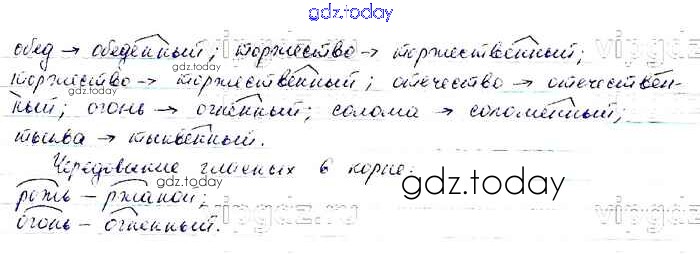 gdz.today
обед → обеденный; торжество → торжественный;
торжество → торжественный; отечество → отечествен-
ный; огонь → огненный; солома → соломенный;
тыква → тыквенный.
Чередование гласных в корне:
рожь – ржаной;
огонь – огненный.
gdz.today
gdz.today
gdz.today
gdz.today
vipgdz.ru
vipgdz.ru